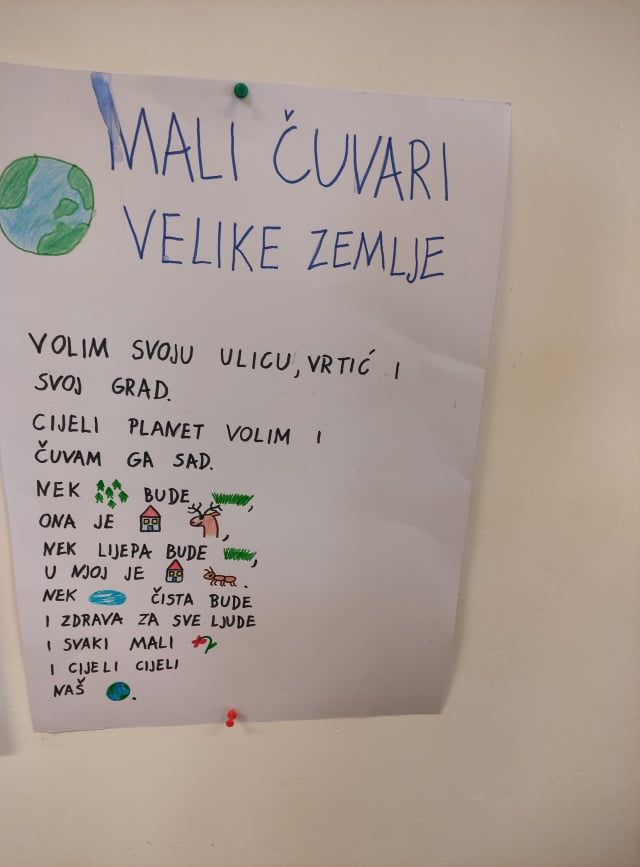 MALI ČUVARI
VELIKE ZEMLJE
VOLIM SVOJU ULICU, VRTIĆ I
SVOJ GRAD.
CIJELI PLANET VOLIM I
ČUVAM GA SAD.
NEK BUDE ,
ONA JE ,
NEK LIJEPA BUDE ,
U NJOJ JE .
NEK ČISTA BUDE
I ZDRAVA ZA SVE LJUDE
I SVAKI MALI
I CIJELI CIJELI
NAŠ .